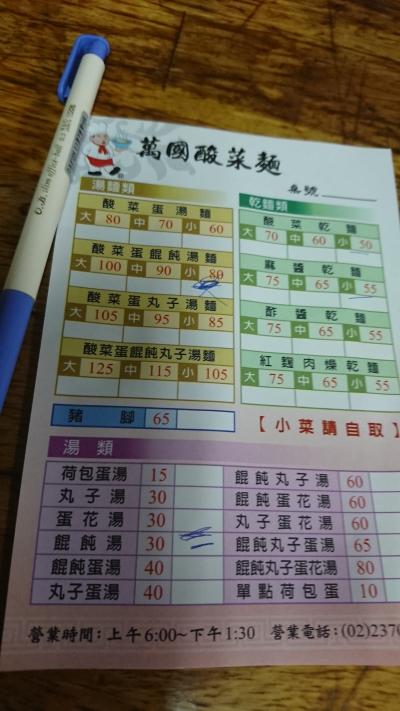 萬國酸菜麵
桌號
湯麵類
酸菜蛋湯麵
大 80 中 70 小 60
酸菜蛋餛飩湯麵
大 100 中 90 小 80
酸菜蛋丸子湯麵
大 105 中 95 小 85
酸菜蛋餛飩丸子湯麵
大 125 中 115 小 105
豬腳 65
乾麵類
酸菜乾麵
大 70 中 60 小 50
麻醬乾麵
大 75 中 65 小 55
酢醬乾麵
大 75 中 65 小 55
紅麴肉燥乾麵
大 75 中 65 小 55
【小菜請自取】
湯類
荷包蛋湯 15 餛飩丸子湯 60
丸子湯 30 餛飩蛋花湯 60
蛋花湯 30 丸子蛋花湯 60
餛飩湯 30 餛飩丸子蛋湯 65
餛飩蛋湯 40 餛飩丸子蛋花湯 80
丸子蛋湯 40 單點荷包蛋 10
營業時間：上午6:00~下午1:30 營業電話：(02)2370